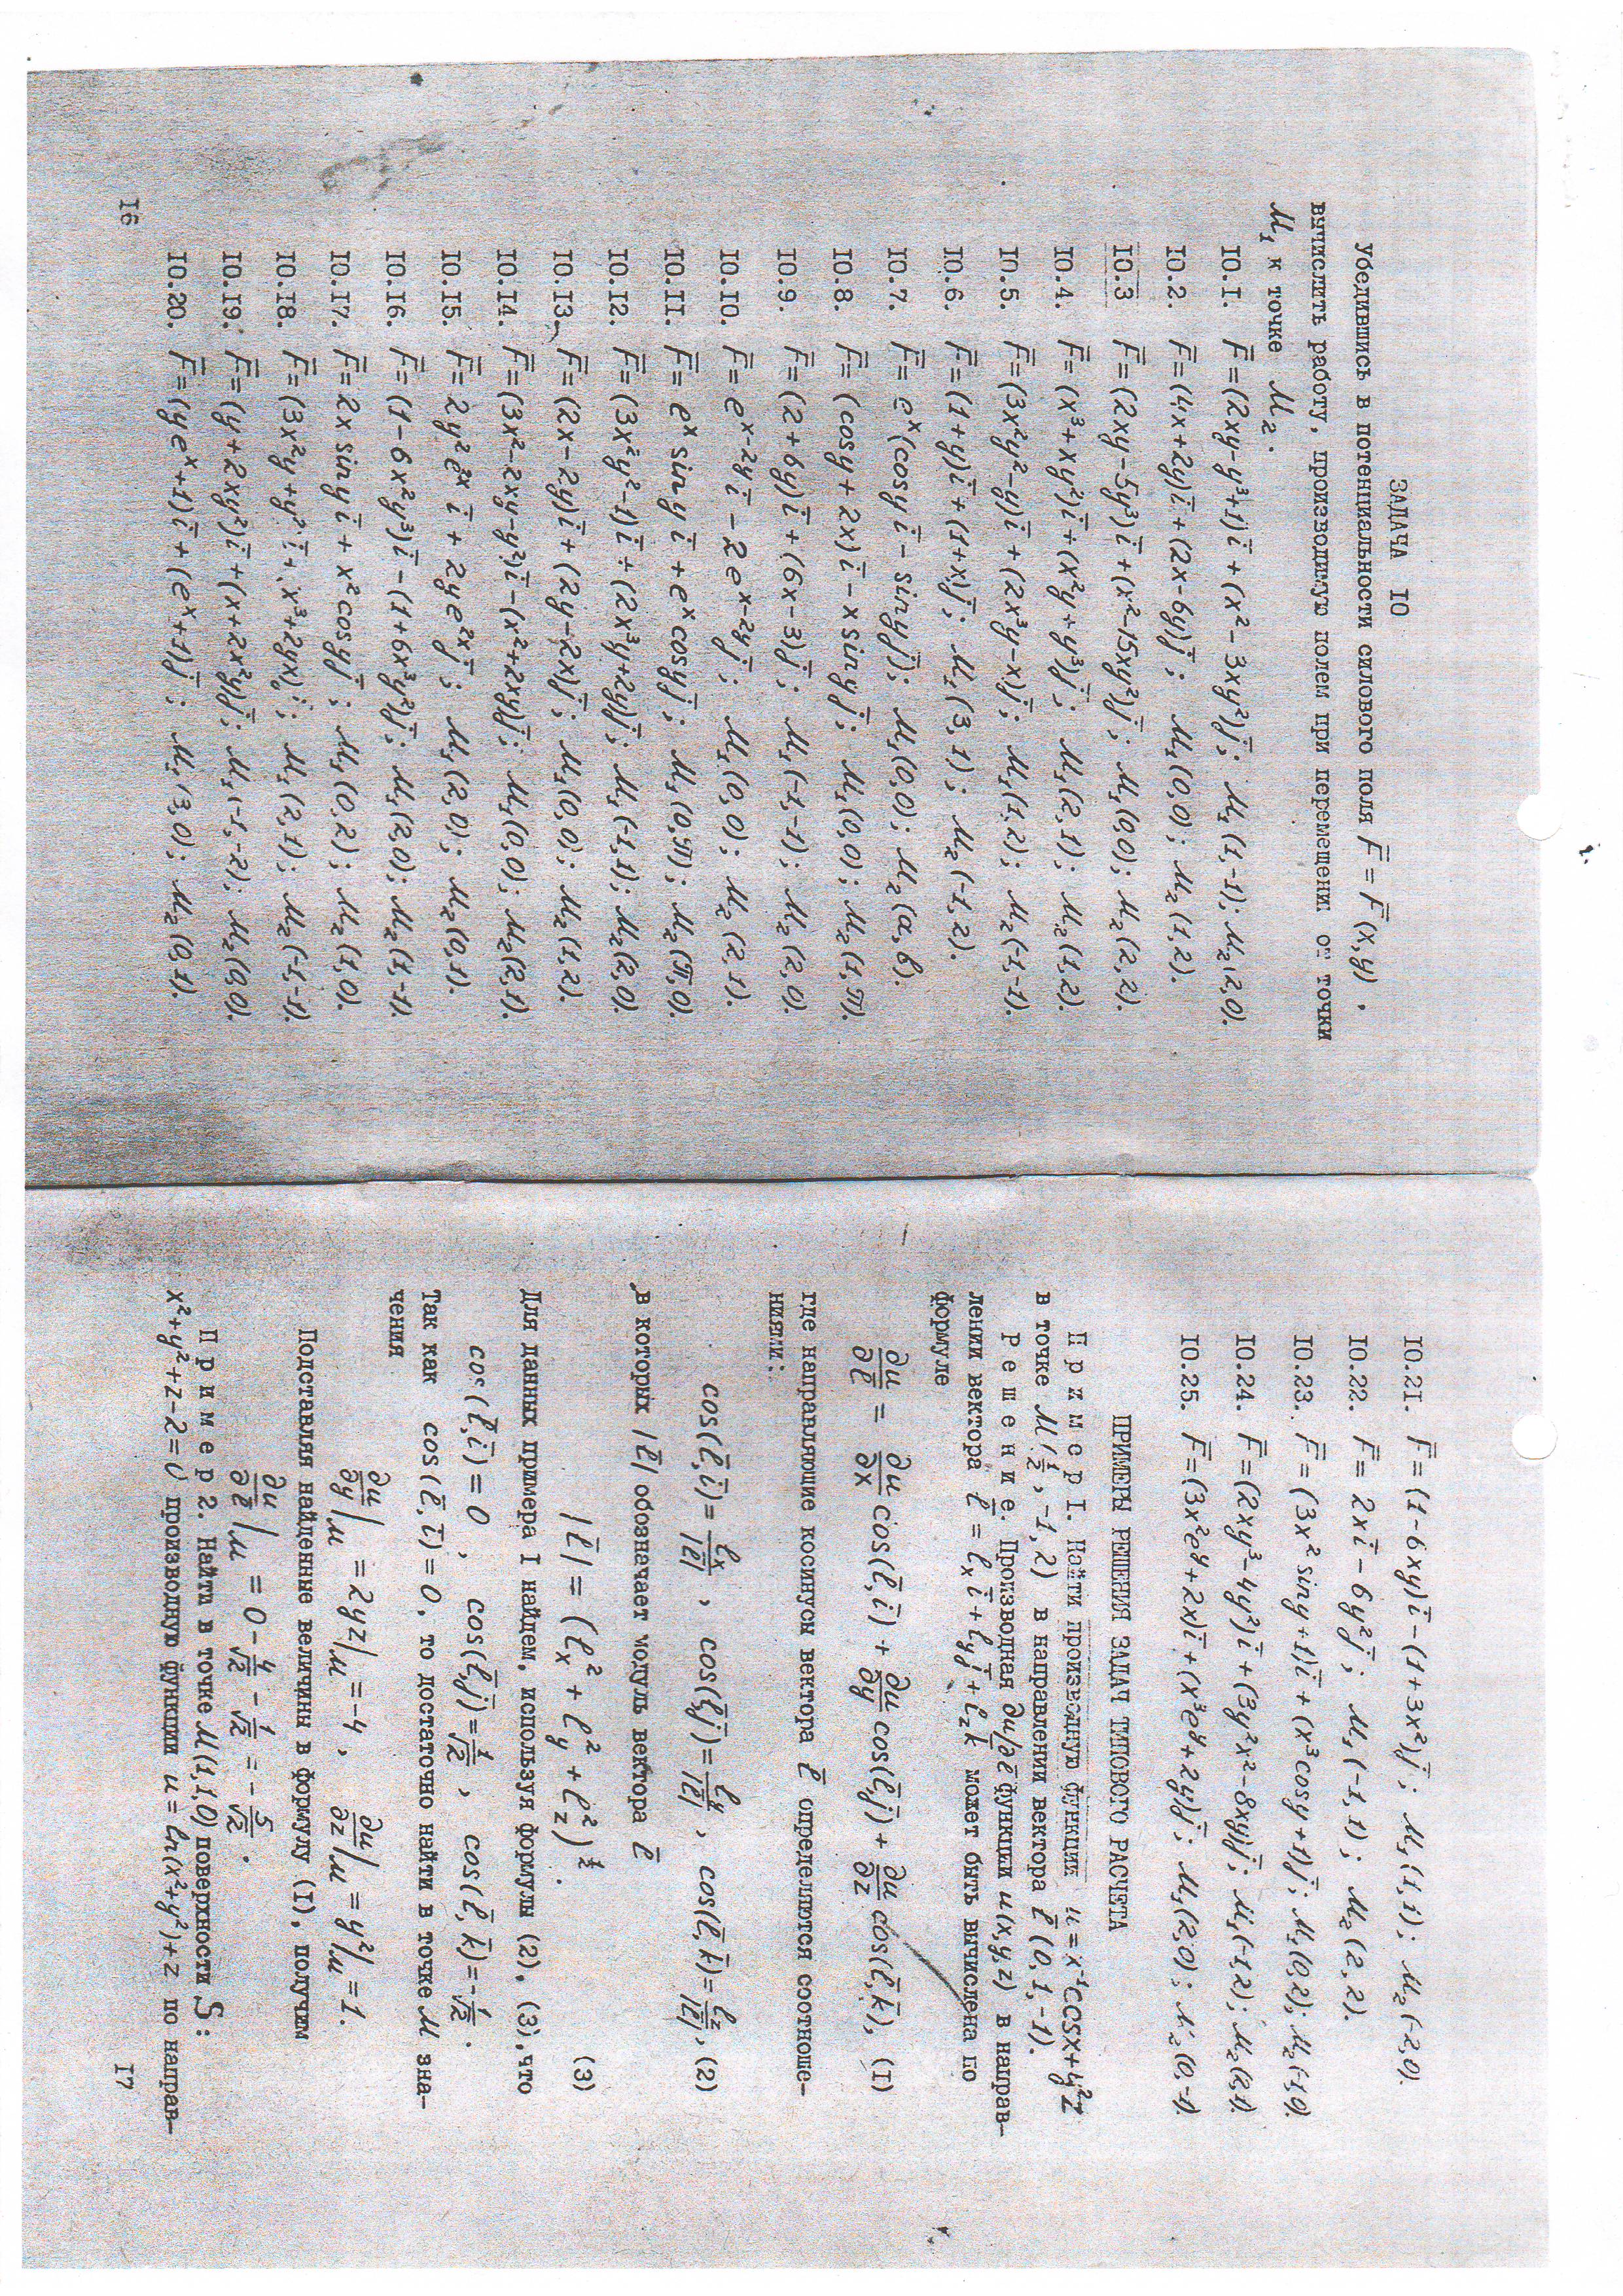 ЗАДАЧА 10
Убедившись в потенциальности силового поля F̄ = F̄(x,y),
вычислить работу, производимую полем при перемещении от точки
M₁ к точке M₂.
10.1. F̄=(2xy-y³+1)ī + (x²-3xy²)j̄; M₁(1,-1); M₂(2,0).
10.2. F̄=(4x+2y)ī+(2x-6y)j̄; M₁(0,0); M₂(1,2).
10.3 F̄=(2xy-5y³)ī+(x²-15xy²)j̄; M₁(0,0); M₂(2,2).
10.4. F̄=(x³+xy²)ī+(x²y+y³)j̄; M₁(2,1); M₂(1,2).
10.5. F̄=(3x²y²-y)ī+(2x³y-x)j̄; M₁(1,2); M₂(-1,-1).
10.6. F̄=(1+y)ī+(1+x)j̄; M₁(3,1); M₂(-1,2).
10.7. F̄= eˣ(cosy ī - siny j̄); M₁(0,0); M₂(a,b).
10.8. F̄=(cosy+2x)ī-x siny j̄; M₁(0,0); M₂(1,π).
10.9. F̄=(2+6y)ī+(6x-3)j̄; M₁(-1,-1); M₂(2,0).
10.10. F̄=eˣ⁻²ʸī-2eˣ⁻²ʸj̄; M₁(0,0); M₂(2,1).
10.11. F̄= eˣsiny ī+eˣcosy j̄; M₁(0,π); M₂(π,0).
10.12. F̄=(3x²y²-1)ī+(2x³y+2y)j̄; M₁(-1,1); M₂(2,0).
10.13. F̄=(2x-2y)ī+(2y-2x)j̄; M₁(0,0); M₂(1,2).
10.14. F̄=(3x²-2xy-y²)ī-(x²+2xy)j̄; M₁(0,0); M₂(2,1).
10.15. F̄=2y²e²ˣ ī + 2ye²ˣj̄; M₁(2,0); M₂(0,1).
10.16. F̄=(1-6x²y³)ī-(1+6x³y²)j̄; M₁(2,0); M₂(1,-1).
10.17. F̄=2x siny ī+x²cosy j̄; M₁(0,2); M₂(1,0).
10.18. F̄=(3x²y+y² ī+(x³+2yx)j̄; M₁(2,1); M₂(-1,-1).
10.19. F̄=(y+2xy²)ī+(x+2x²y)j̄; M₁(-1,-2); M₂(0,0).
10.20. F̄=(yeˣ+1)ī+(eˣ+1)j̄; M₁(3,0); M₂(0,1).
16
10.21. F̄=(1-6xy)ī-(1+3x²)j̄; M₁(1,1); M₂(-2,0).
10.22. F̄= 2xī-6y²j̄; M₁(-1,1); M₂(2,2).
10.23. F̄=(3x²siny+1)ī+(x³cosy+1)j̄; M₁(0,2); M₂(-1,0).
10.24. F̄=(2xy³-4y²)ī+(3y²x²-8xy)j̄; M₁(-1,2); M₂(2,1).
10.25. F̄=(3x²eʸ+2x)ī+(x³eʸ+2y)j̄; M₁(2,0); M₂(0,-1).
ПРИМЕРЫ РЕШЕНИЯ ЗАДАЧ ТИПОВОГО РАСЧЕТА
Пример 1. Найти производную функции u=x⁻¹cosx+y²z
в точке M(1/2,-1,2) в направлении вектора ℓ̄(0,1,-1).
Решение. Производная ∂u/∂ℓ̄ функции u(x,y,z) в направ-
лении вектора ℓ̄=ℓₓī+ℓ_yj̄+ℓ_zk̄ может быть вычислена по
формуле
∂u/∂ℓ̄ = ∂u/∂x cos(ℓ̄,ī) + ∂u/∂y cos(ℓ̄,j̄) + ∂u/∂z cos(ℓ̄,k̄), (1)
где направляющие косинусы вектора ℓ̄ определяются соотноше-
ниями:
cos(ℓ̄,ī)=ℓₓ/|ℓ̄|, cos(ℓ̄,j̄)=ℓ_y/|ℓ̄|, cos(ℓ̄,k̄)=ℓ_z/|ℓ̄|, (2)
в которых |ℓ̄| обозначает модуль вектора ℓ̄
|ℓ̄| = (ℓₓ² + ℓ_y² + ℓ_z²)^½. (3)
Для данных примера 1 найдем, используя формулы (2), (3), что
cos(ℓ̄,ī)=0, cos(ℓ̄,j̄)=1/√2, cos(ℓ̄,k̄)=-1/√2.
Так как cos(ℓ̄,ī)=0, то достаточно найти в точке M зна-
чения
∂u/∂y|M = 2yz|M = -4, ∂u/∂z|M = y²|M = 1.
Подставляя найденные величины в формулу (1), получим
∂u/∂ℓ̄|M = 0 - 4/√2 - 1/√2 = -5/√2.
Пример 2. Найти в точке M(1,1,0) поверхности S:
x²+y²+z-2=0 производную функции u=ln(x²+y²)+z по направ-
17